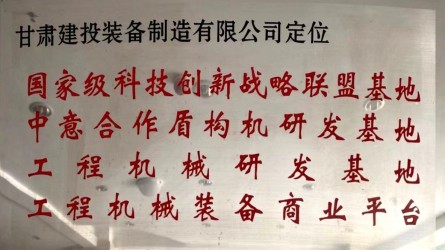 甘肃建投装备制造有限公司定位
国家级科技创新战略联盟基地
中意合作盾构机研发基地
工程机械研发基地
工程机械装备商业平台